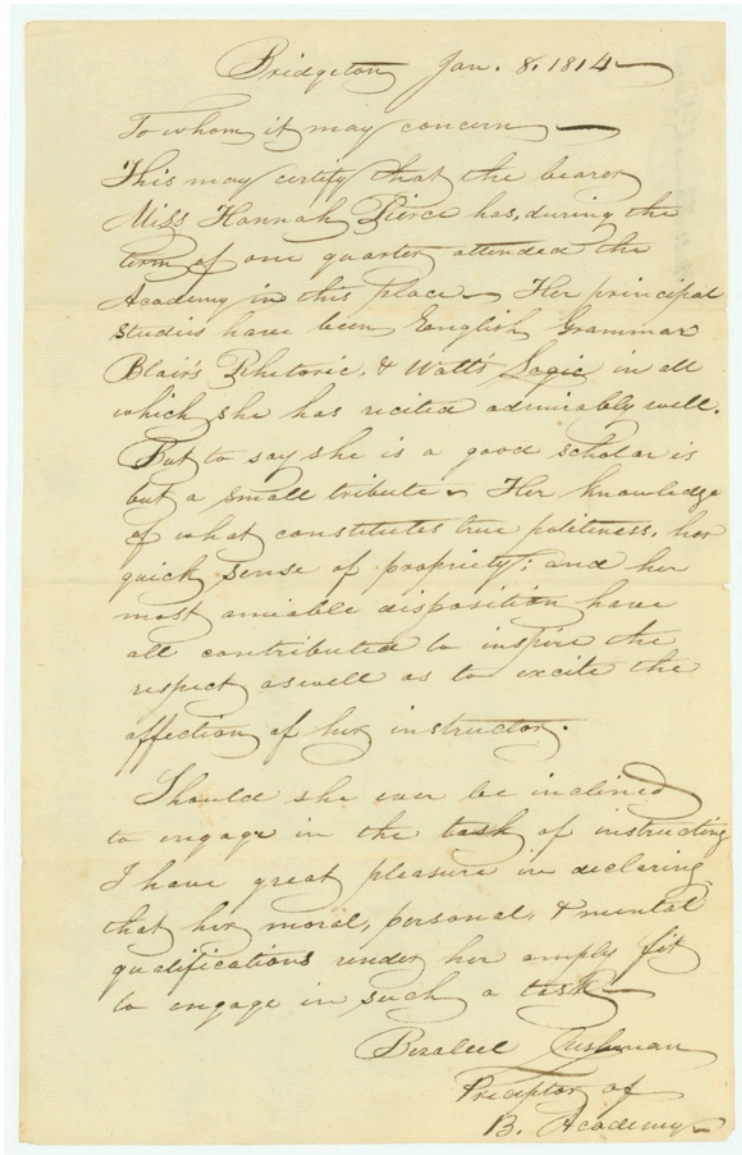 Bridgton Jan. 8. 1814 —
To whom it may concern —
This may certify that the bearer
Miss Hannah Pierce has, during the
term of one quarter attended the
Academy in this place — Her principal
studies have been English Grammar
Blair's Rhetoric, & Watts Logic in all
which she has recited admirably well.
But to say she is a good scholar is
but a small tribute — Her knowledge
of what constitutes true politeness, her
quick sense of propriety; and her
most amiable disposition have
all contributed to inspire the
respect as well as to excite the
affection of her instructor.
Should she ever be inclined
to engage in the task of instructing
I have great pleasure in declaring
that her moral, personal, & mental
qualifications render her amply fit
to engage in such a task —
Bezaleel Cushman
Preceptor of
B. Academy